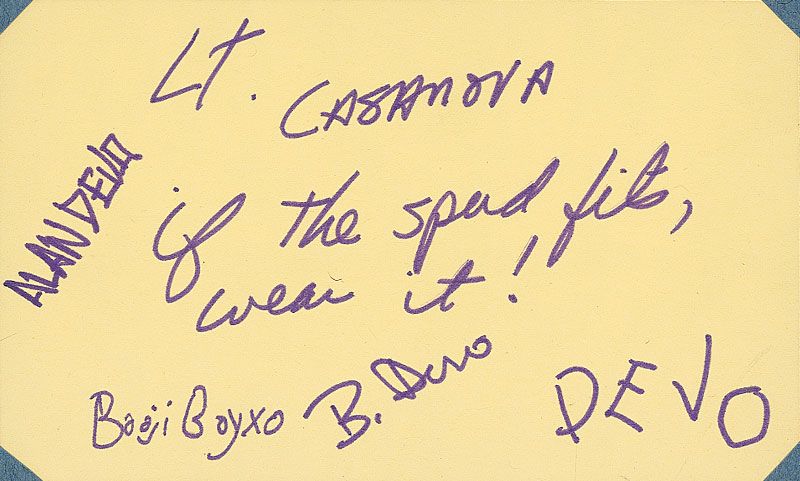 Lt. CASANOVA
ALAN DEVO
if the spud fits,
wear it!
Booji Boy xo
B. Devo
DEVO